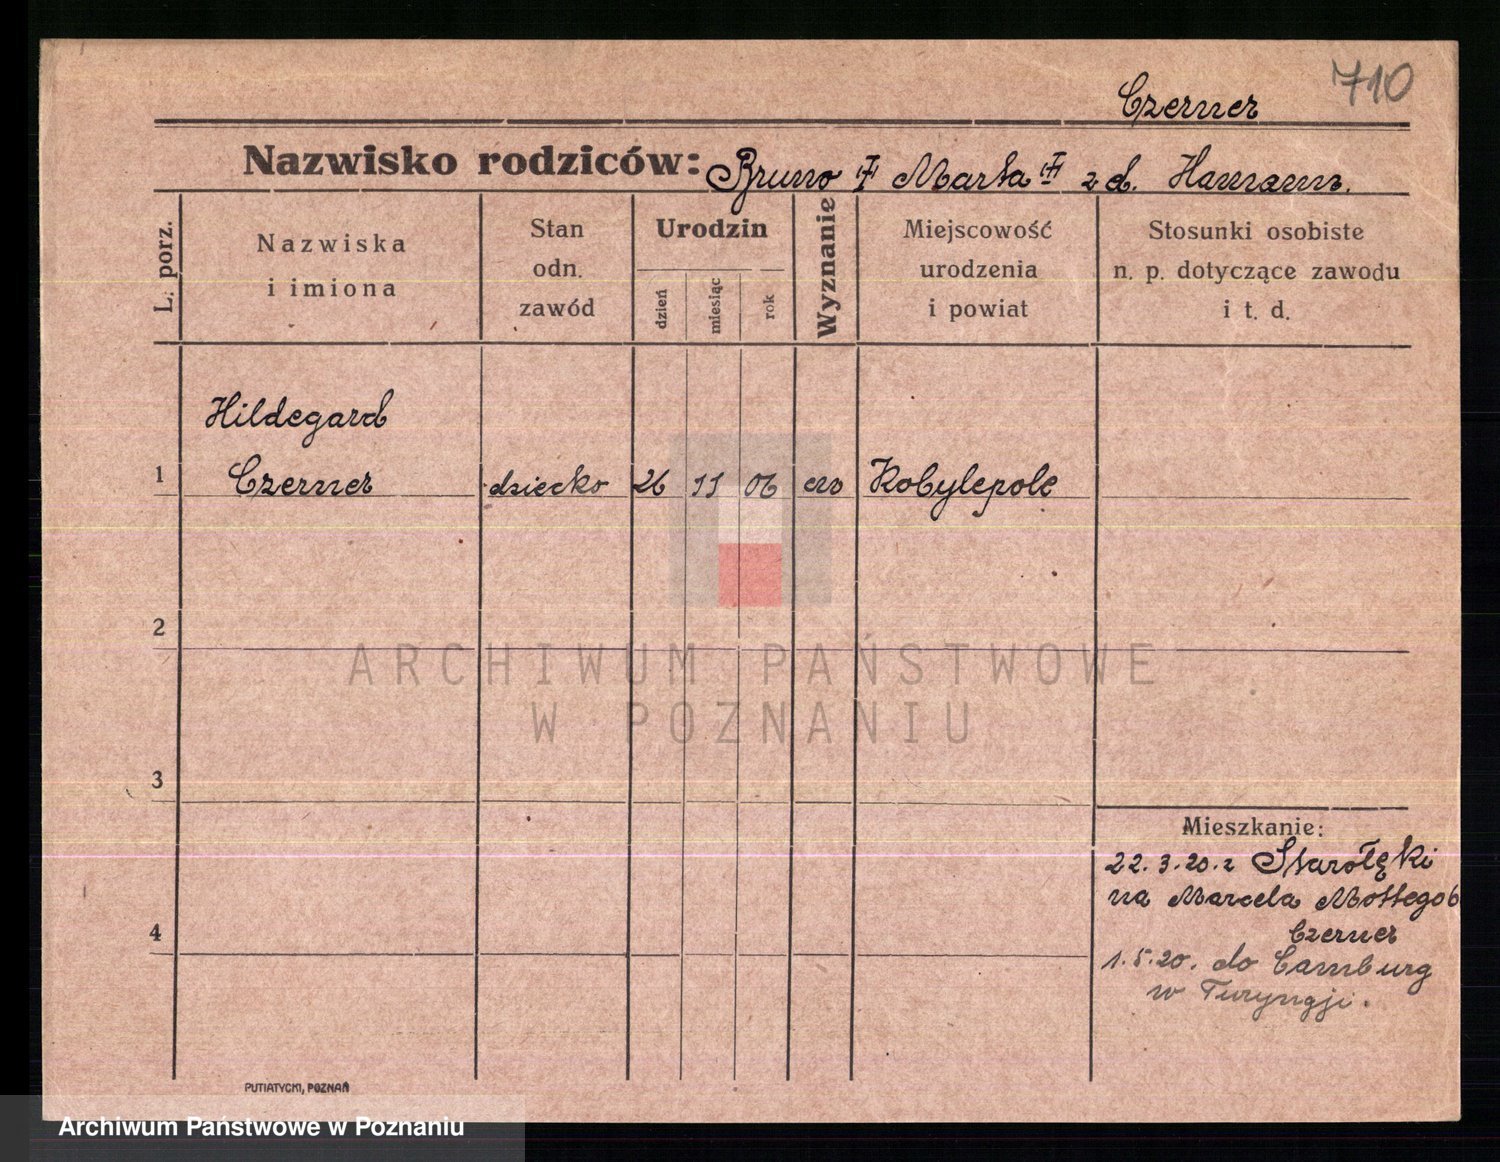 710
Czerner
Nazwisko rodziców: Bruno Marta z d. Hamann.
L. porz.
Nazwiska
i imiona
Stan
odn.
zawód
Urodzin
dzień
miesiąc
rok
Wyznanie
Miejscowość
urodzenia
i powiat
Stosunki osobiste
n. p. dotyczące zawodu
i t. d.
Hildegard
1 Czerner dziecko 26 11 06 ew Kobylepole
2
3
4
Mieszkanie:
22.3.20. z Starołęki
na Marcela Mottego 6
Czerner
1.5.20. do Camburg
w Turyngji.
PUTIATYCKI, POZNAŃ
ARCHIWUM PAŃSTWOWE
W POZNANIU
Archiwum Państwowe w Poznaniu